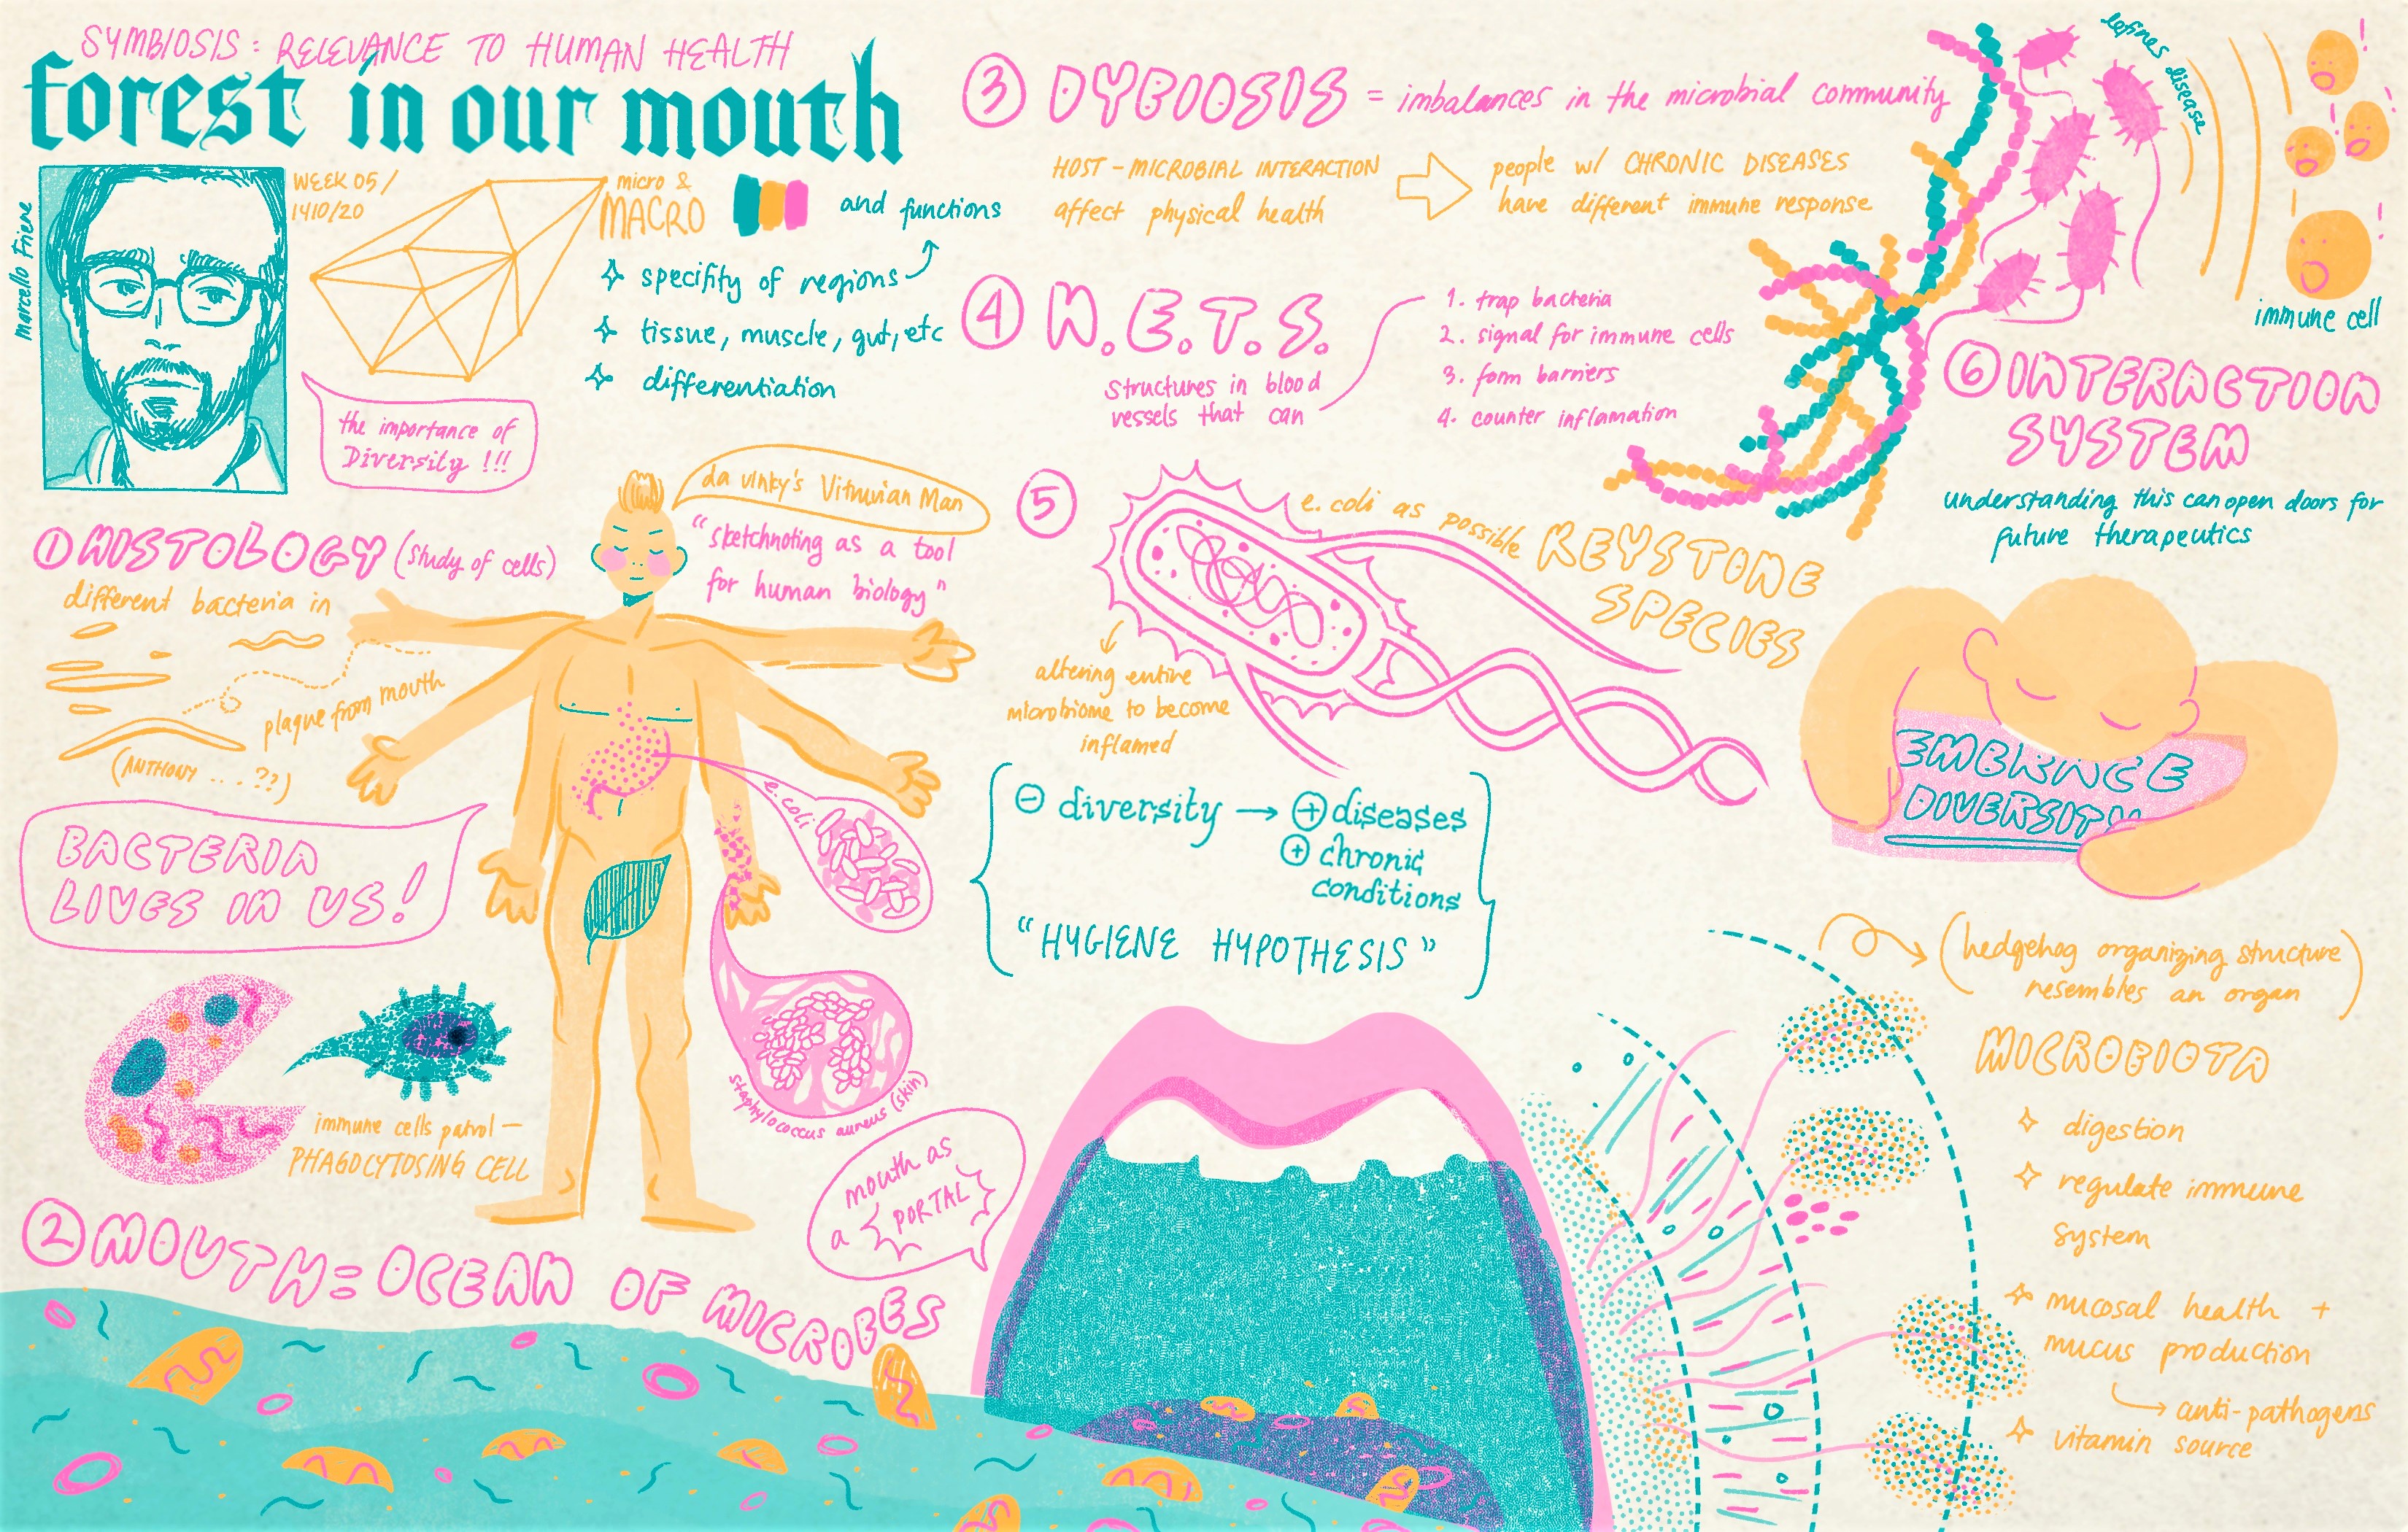 SYMBIOSIS: RELEVANCE TO HUMAN HEALTH
forest in our mouth
marcello Friere
WEEK 05/
1410/20
micro &
MACRO
and functions
specifity of regions
tissue, muscle, gut, etc
differentiation
the importance of
Diversity !!!
da vinky's Vitruvian Man
"sketchnoting as a tool
for human biology"
① HISTOLOGY (study of cells)
different bacteria in
plaque from mouth
(ANTHONY ... ??)
BACTERIA
LIVES IN US!
e.coli
staphylococcus aureus (skin)
immune cells patrol —
PHAGOCYTOSING CELL
mouth as
a PORTAL
② MOUTH = OCEAN OF MICROBES
③ DYBIOSIS = imbalances in the microbial community
HOST-MICROBIAL INTERACTION
affect physical health
people w/ CHRONIC DISEASES
have different immune response
④ N.E.T.S.
structures in blood
vessels that can
1. trap bacteria
2. signal for immune cells
3. form barriers
4. counter inflamation
⑤
e.coli as possible KEYSTONE
SPECIES
altering entire
microbiome to become
inflamed
⊖ diversity → ⊕ diseases
⊕ chronic
conditions
"HYGIENE HYPOTHESIS"
defines disease
! ! ! ! ! !
immune cell
⑥ INTERACTION
SYSTEM
understanding this can open doors for
future therapeutics
EMBRACE
DIVERSITY
(hedgehog organizing structure
resembles an organ)
MICROBIOTA
digestion
regulate immune
system
mucosal health +
mucus production
→ anti-pathogens
vitamin source